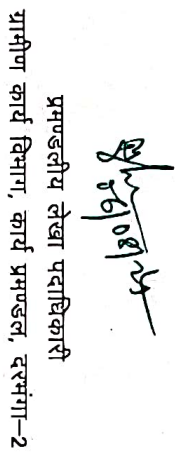 06/08/25
प्रमण्डलीय लेखा पदाधिकारी
ग्रामीण कार्य विभाग, कार्य प्रमण्डल, दरभंगा–2